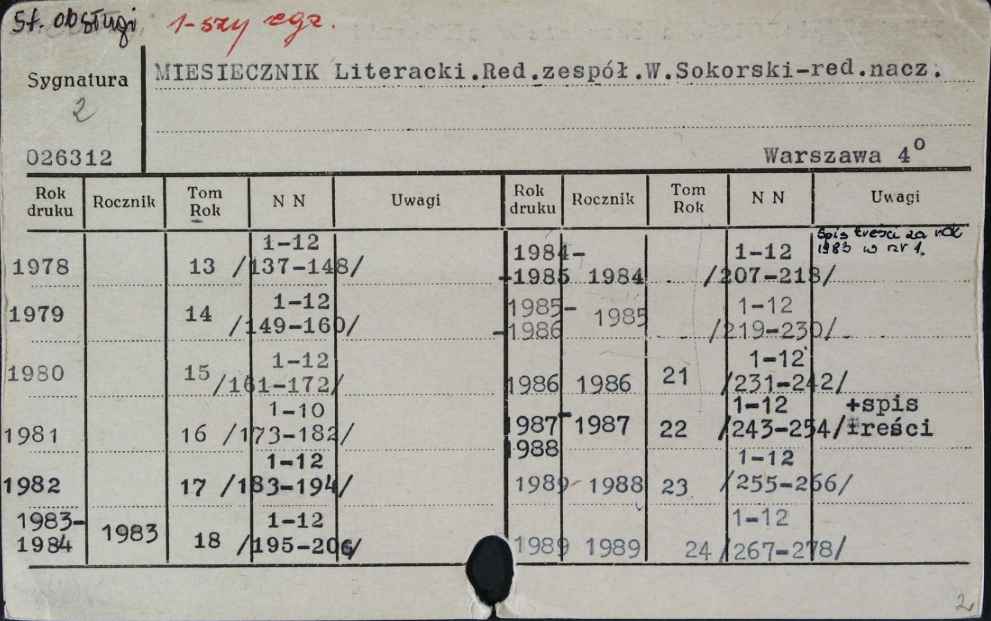 St. obsługi 1-szy egz.
Sygnatura MIESIECZNIK Literacki.Red.zespół.W.Sokorski-red.nacz.
2
026312 Warszawa 4º
Rok druku Rocznik Tom Rok N N Uwagi Rok druku Rocznik Tom Rok N N Uwagi
1978 13 1-12 /137-148/
1979 14 1-12 /149-160/
1980 15 1-12 /161-172/
1981 16 1-10 /173-182/
1982 17 1-12 /183-194/
1983-1984 1983 18 1-12 /195-206/
1984-1985 1984 1-12 /207-218/ Spis treści za rok 1983 w nr 1.
1985-1986 1985 1-12 /219-230/
1986 1986 21 1-12 /231-242/
1987-1988 1987 22 1-12 /243-254/ +spis treści
1989 1988 23 1-12 /255-266/
1989 1989 24 1-12 /267-278/
2